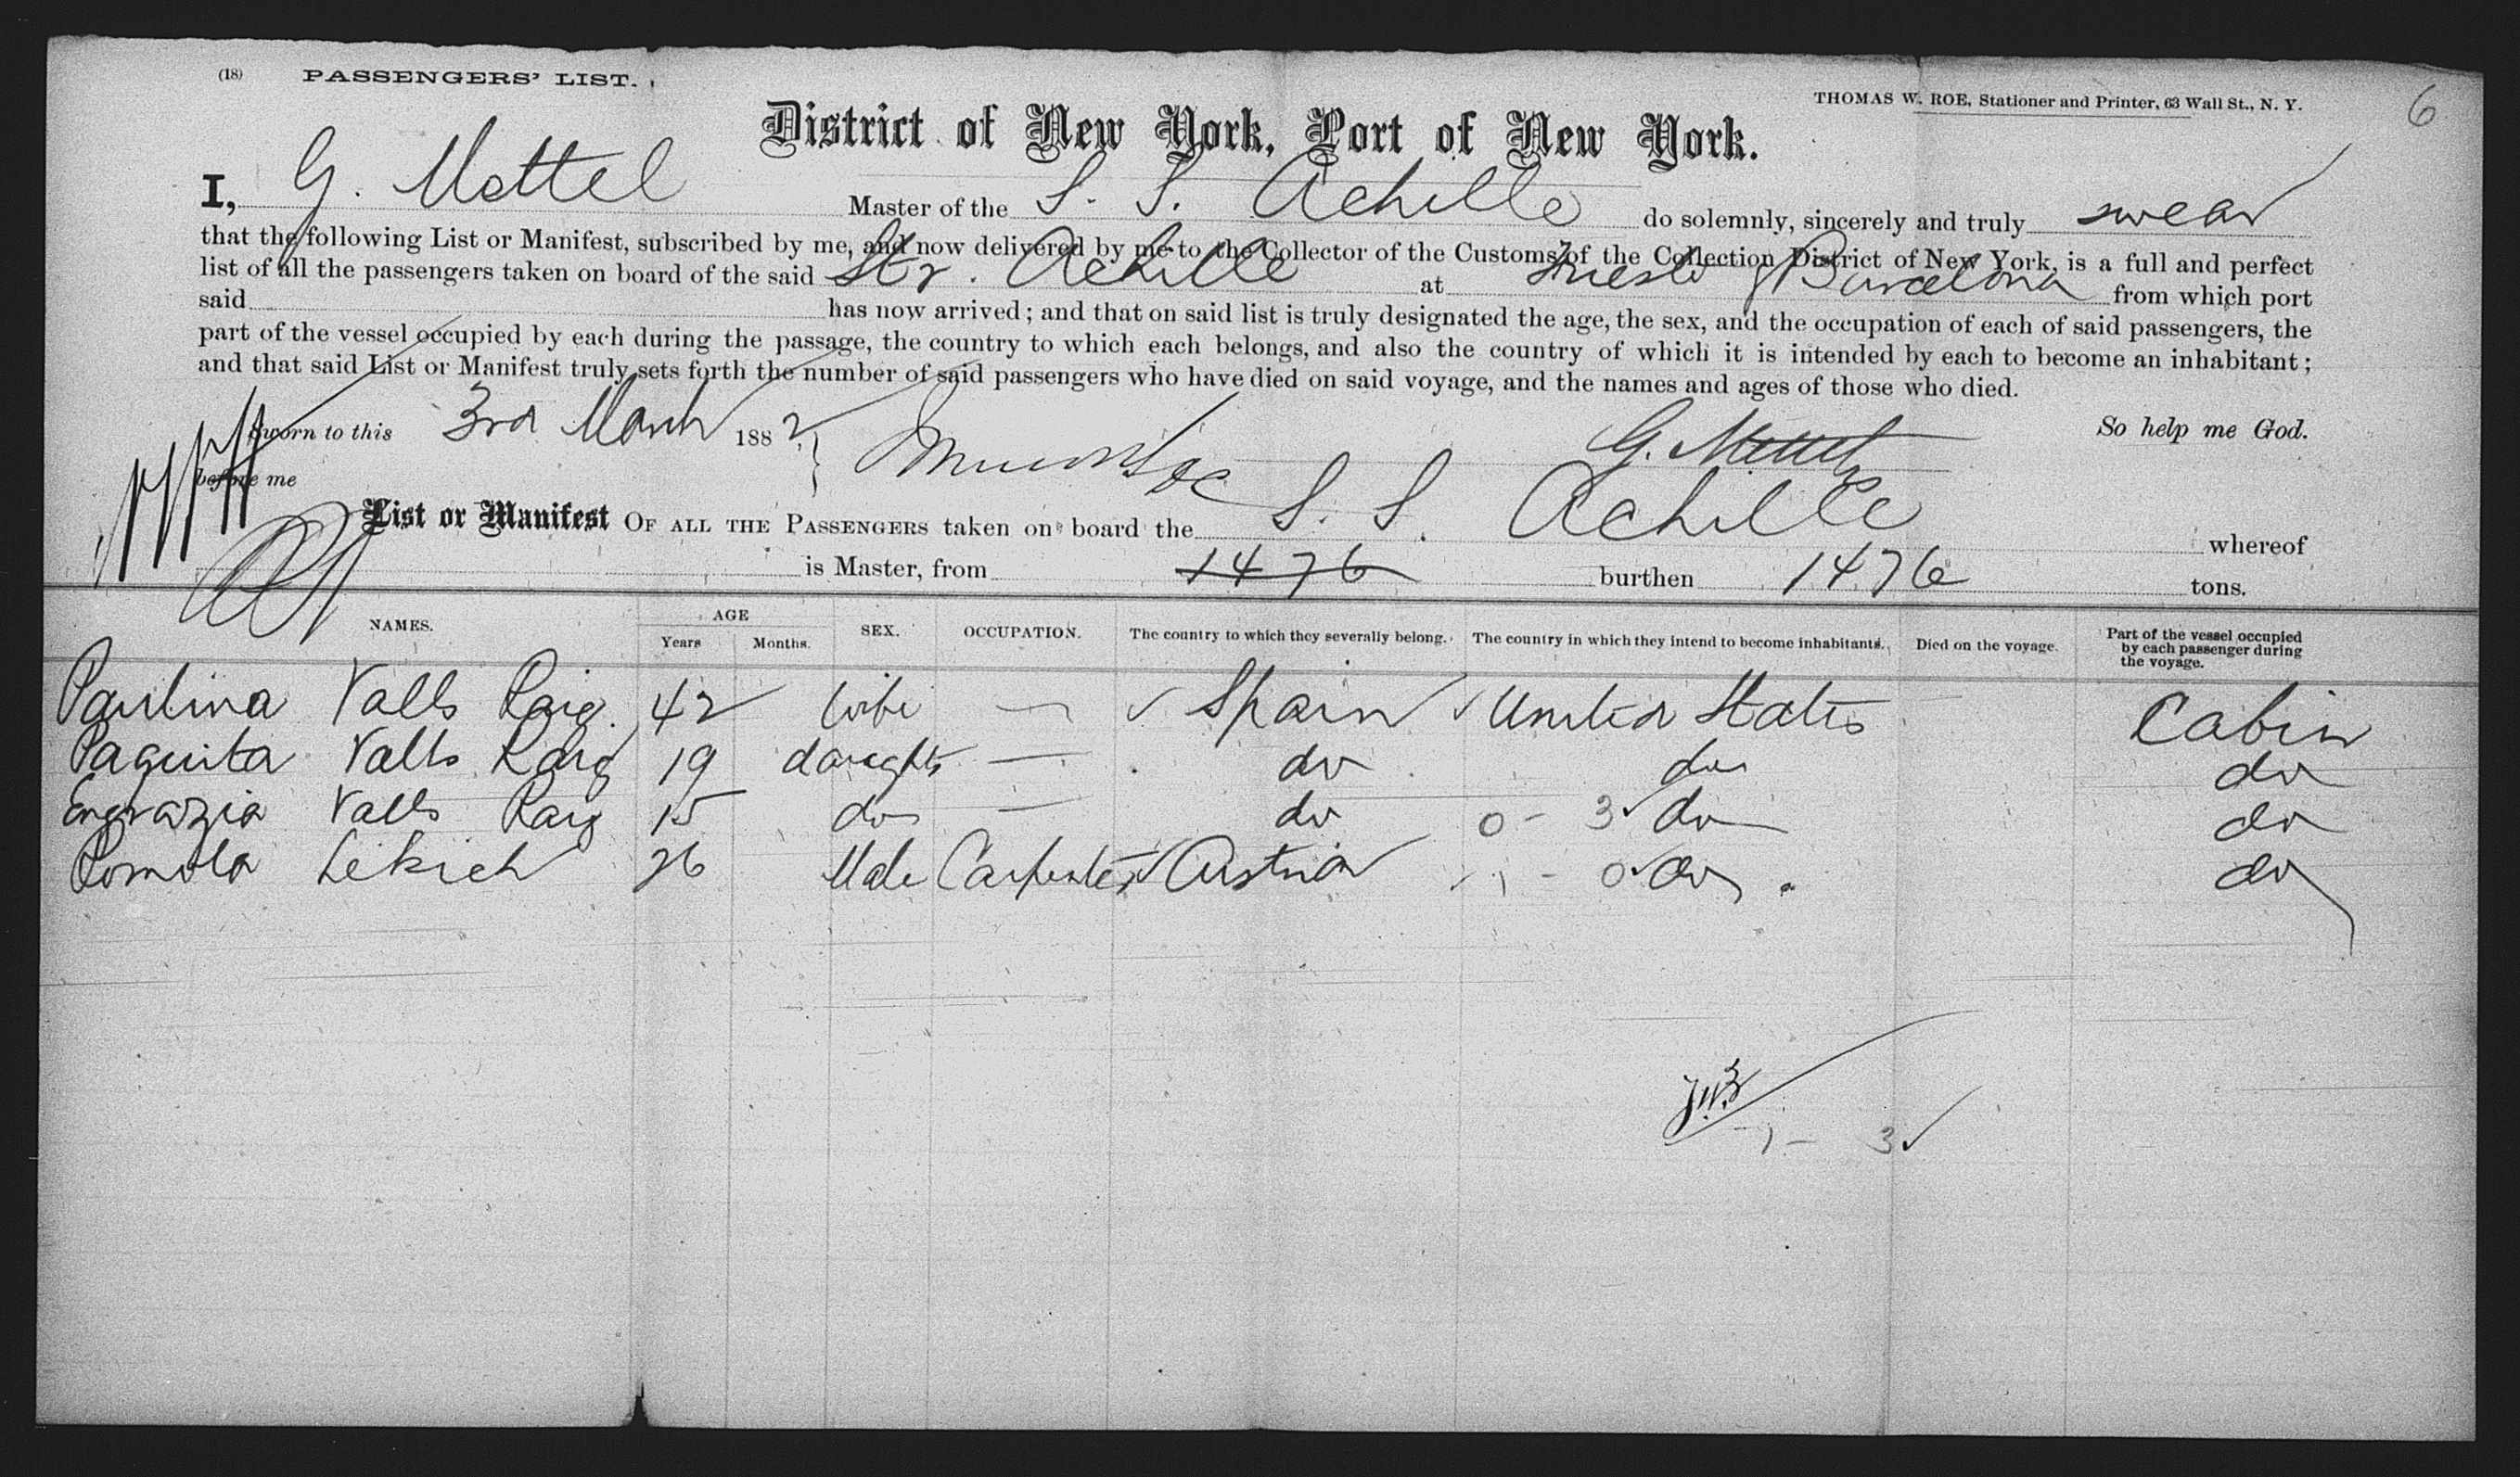 (18) PASSENGERS' LIST.
THOMAS W. ROE, Stationer and Printer, 63 Wall St., N. Y.
6
District of New York, Port of New York.
I, G. Mettel Master of the S. S. Achille do solemnly, sincerely and truly swear
that the following List or Manifest, subscribed by me, and now delivered by me to the Collector of the Customs of the Collection District of New York, is a full and perfect
list of all the passengers taken on board of the said Str. Achille at Trieste & Barcelona from which port
said has now arrived; and that on said list is truly designated the age, the sex, and the occupation of each of said passengers, the
part of the vessel occupied by each during the passage, the country to which each belongs, and also the country of which it is intended by each to become an inhabitant;
and that said List or Manifest truly sets forth the number of said passengers who have died on said voyage, and the names and ages of those who died.
Sworn to this 3rd March 1882, G. Mettel So help me God.
before me
List or Manifest OF ALL THE PASSENGERS taken on board the S. S. Achille whereof
is Master, from 1476 burthen 1476 tons.
NAMES. AGE Years Months. SEX. OCCUPATION. The country to which they severally belong. The country in which they intend to become inhabitants. Died on the voyage. Part of the vessel occupied by each passenger during the voyage.
Paulina Valls Raig. 42 Wife — Spain United States Cabin
Paquita Valls Raig 19 daught — do do do
Engrazia Valls Raig 15 do — do 0 - 3 do do
Romola Lekich 26 Male Carpenter Austria 1 - 0 do do
1 - 3